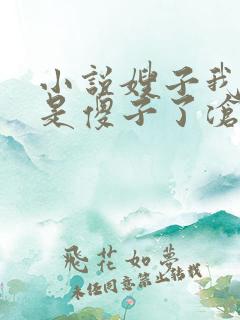 小说嫂子我
是傻子了滄
飛花如夢
未经同意禁止转载